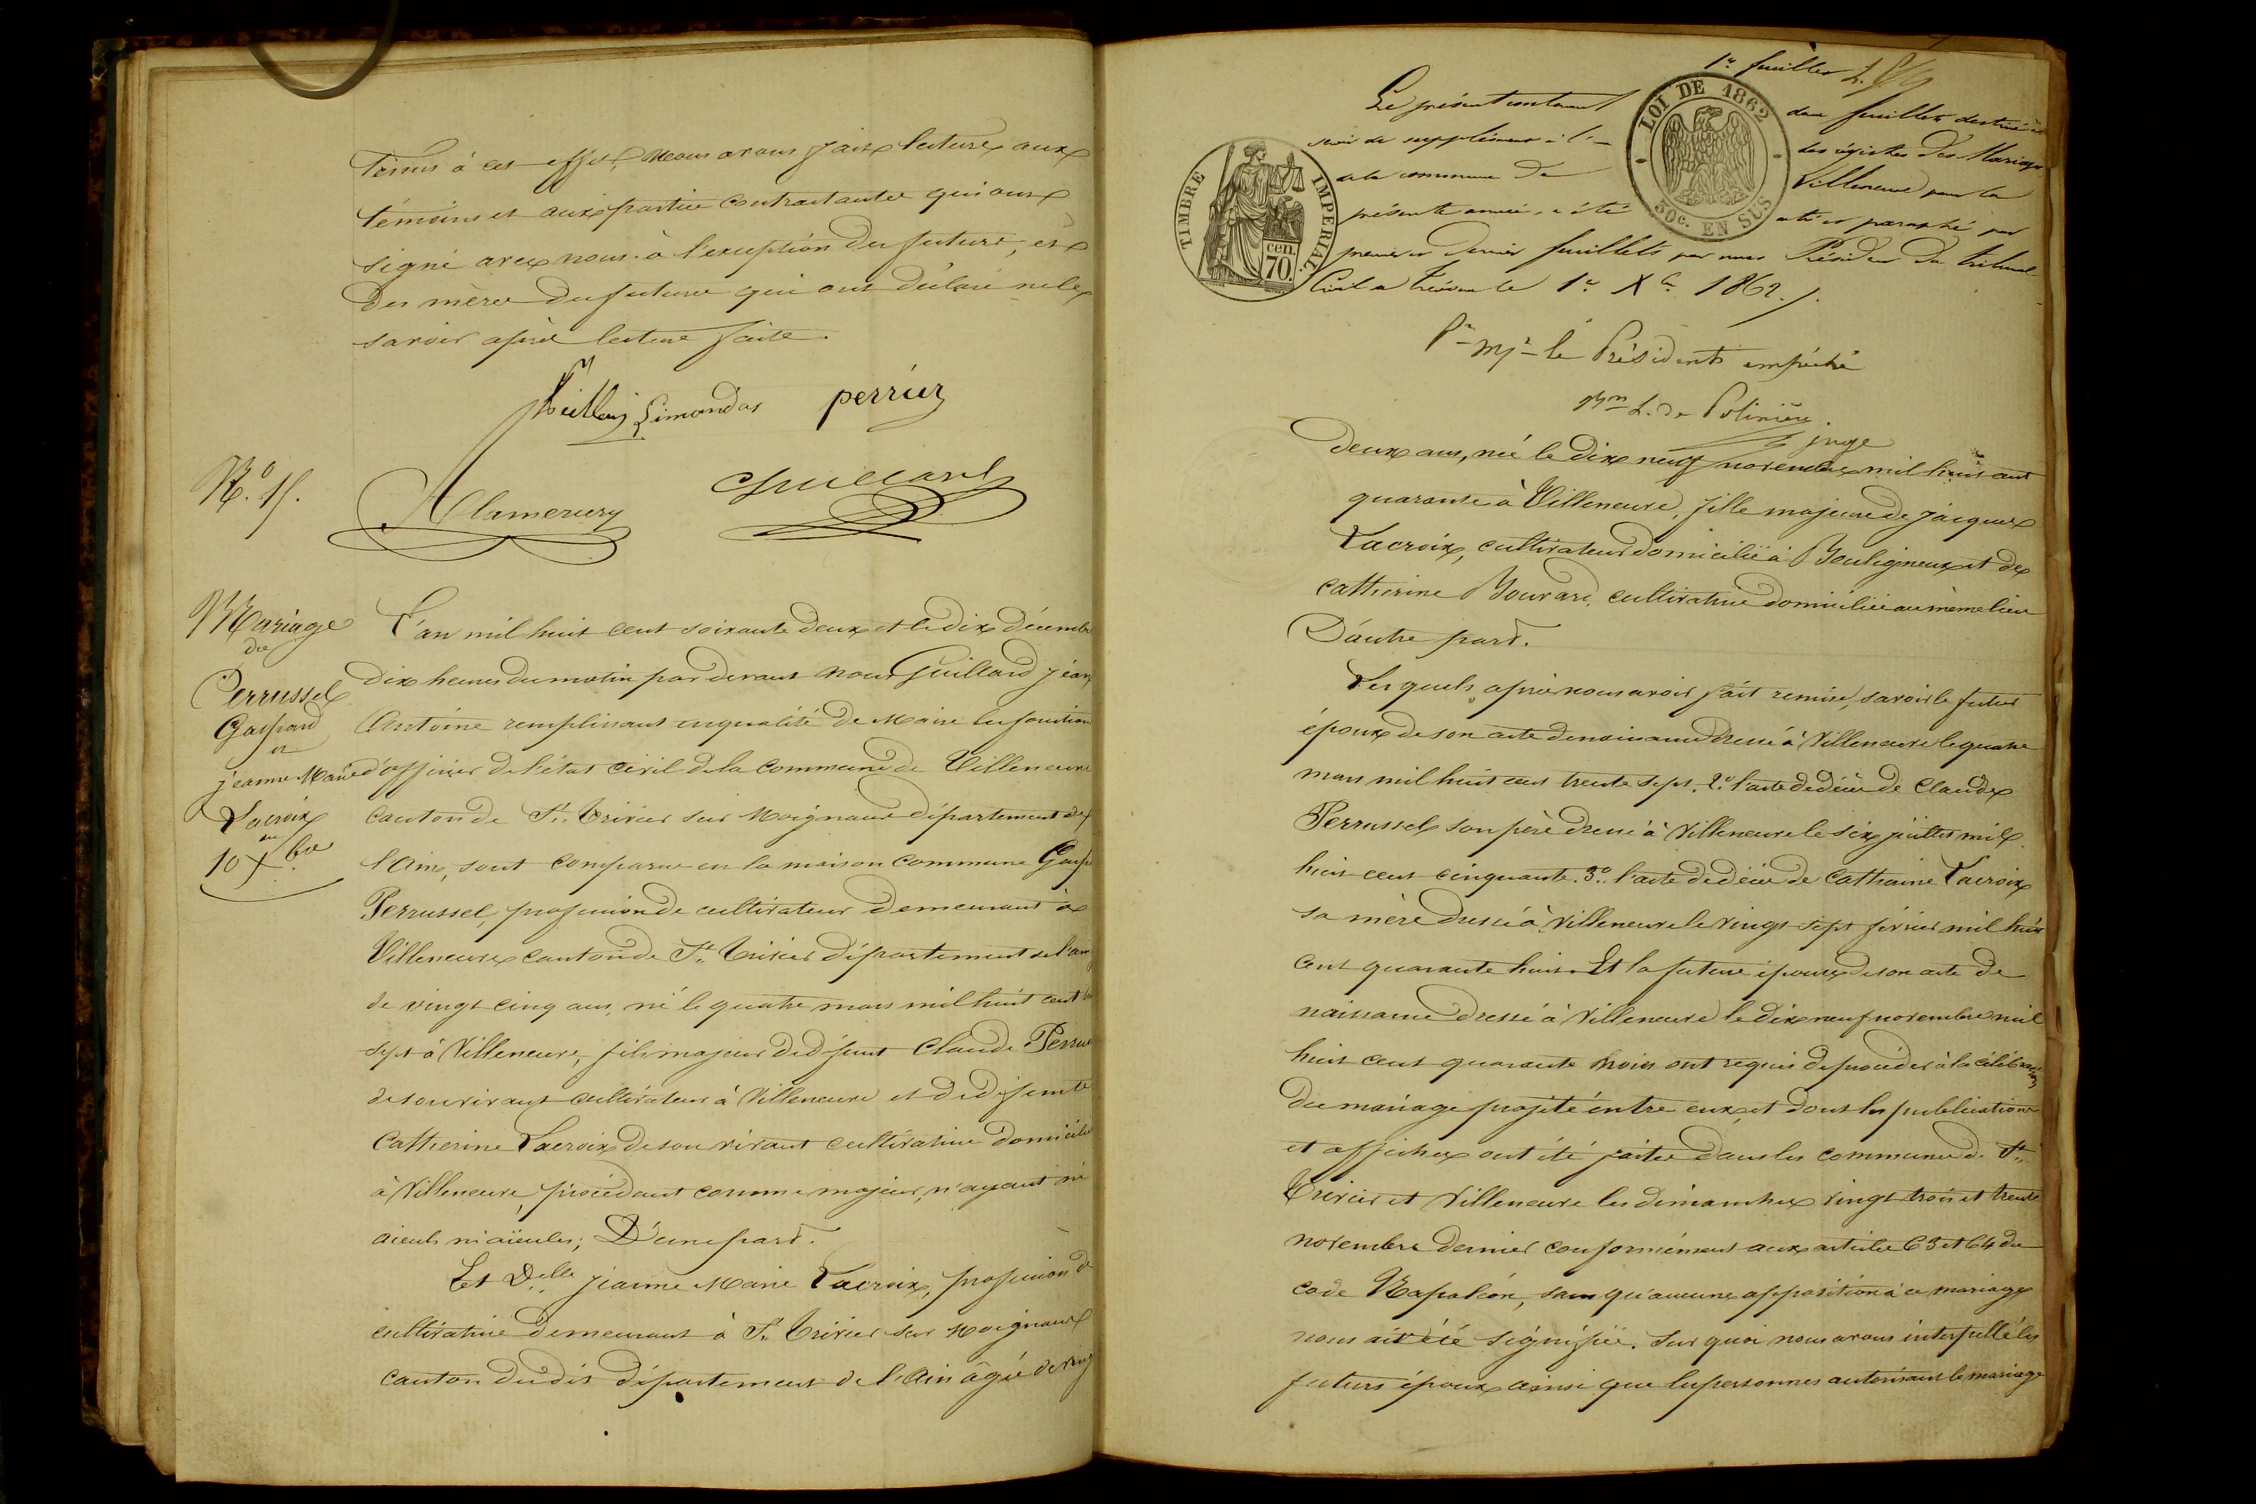 tenus à cet effet, nous avons fait lecture aux
témoins et aux parties contractantes qui ont
signé avec nous à l'exception du futur, et
des mères du future qui ont déclaré ne le
savoir après lecture faite.
Simandas perrier
N.o 15.
Alamercery
Guillard
Mariage
de
Perrussel
Gaspard
et
jeanne Marie
Lacroix
au
10 Xbre
L'an mil huit cent soixante deux et le dix décembre
dix heures du matin par devant nous Guillard jean
Antoine remplissant en qualité de Maire les fonctions
d'officier de l'état civil de la commune de Villeneuve
canton de St. Trivier sur Moignans département de
l'Ain, sont comparus en la maison commune Gasp
Perrussel, profession de cultivateur demeurant à
Villeneuve canton de St. Trivier département de l'ain
de vingt cinq ans, né le quatre mars mil huit cent
sept à Villeneuve, fils majeur de défunt Claude Perrus
de son vivant cultivateur à Villeneuve et de défunte
Catherine Lacroix de son vivant cultivatrice domiciliée
à Villeneuve, procédant comme majeur, n'ayant ni
aieuls ni aïeules; D'une part.
Et Delle jeanne Marie Lacroix, profession de
cultivatrice demeurant à St. Trivier sur Moignans
canton dudit département de l'Ain âgée de ving
1er feuillet
Le présent contenant deux feuillets destinés à
servir de supplément à l' des régistres des Mariages
de la commune de Villeneuve pour la
présente année, a été coté et paraphé par
premier et dernier feuillets par nous Président du tribunal
Civil de Trévoux le 1er Xbre 1862.
LOI DE 1862
50c. EN SUS
TIMBRE IMPERIAL
cen.
70.
Pr Mr le Président empêché
L. de Polinière
juge
deux ans, née le dix neuf novembre mil huit cent
quarante à Villeneuve, fille majeure de jacques
Lacroix, cultivateur domicilié à Bouligneux et de
catherine Bouvard, cultivatrice domiciliée au même lieu
D'autre part.
Lesquels après nous avoir fait remise, savoir le futur
époux de son acte de naissance dressé à Villeneuve le quatre
mars mil huit cent trente sept, 2o. l'acte de décès de Claude
Perrussel son père dressé à Villeneuve le six juillet mil
huit cent cinquante. 3o. l'acte de décès de Catherine Lacroix
sa mère dressé à Villeneuve le vingt sept février mil huit
cent quarante huit. Et la future épouse de son acte de
naissance dressé à Villeneuve le dix neuf novembre mil
huit cent quarante nous ont requis de procéder à la célébration
du mariage projeté entre eux, et dont les publications
et affiches ont été faites dans les communes de St.
Trivier et Villeneuve les dimanches vingt trois et trente
novembre dernier conformément aux articles 63 et 64 du
code Napoléon, sans qu'aucune opposition à ce mariage
nous ait été signifiée. Sur quoi nous avons interpellé les
futurs époux ainsi que les personnes autorisant le mariage